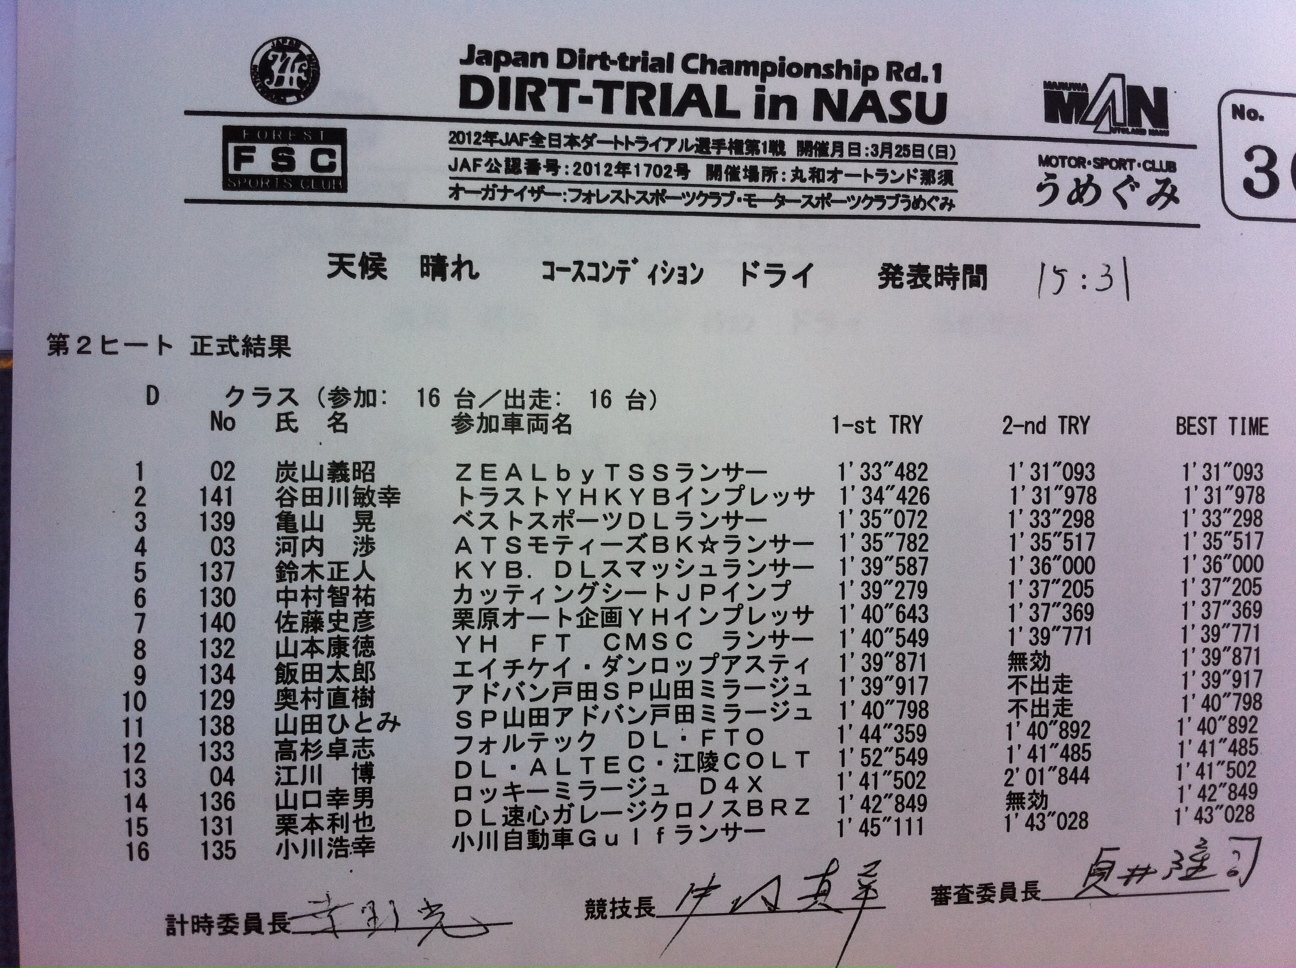 JAPAN
JAF
Japan Dirt-trial Championship Rd.1
DIRT-TRIAL in NASU
MARUWA
MAN
AUTOLAND NASU
No.
FOREST
FSC
SPORTS CLUB
2012年JAF全日本ダートトライアル選手権第1戦 開催月日:3月25日(日)
JAF公認番号:2012年1702号 開催場所:丸和オートランド那須
オーガナイザー:フォレストスポーツクラブ・モータースポーツクラブうめぐみ
MOTOR・SPORT・CLUB
うめぐみ
3
天候 晴れ コースコンディション ドライ 発表時間 15:31
第2ヒート 正式結果
D クラス (参加: 16 台/出走: 16 台)
No 氏 名 参加車両名 1-st TRY 2-nd TRY BEST TIME
1 02 炭山義昭 ZEALbyTSSランサー 1'33"482 1'31"093 1'31"093
2 141 谷田川敏幸 トラストYHKYBインプレッサ 1'34"426 1'31"978 1'31"978
3 139 亀山 晃 ベストスポーツDLランサー 1'35"072 1'33"298 1'33"298
4 03 河内 渉 ATSモティーズBK☆ランサー 1'35"782 1'35"517 1'35"517
5 137 鈴木正人 KYB.DLスマッシュランサー 1'39"587 1'36"000 1'36"000
6 130 中村智祐 カッティングシートJPインプ 1'39"279 1'37"205 1'37"205
7 140 佐藤史彦 栗原オート企画YHインプレッサ 1'40"643 1'37"369 1'37"369
8 132 山本康徳 YH FT CMSC ランサー 1'40"549 1'39"771 1'39"771
9 134 飯田太郎 エイチケイ・ダンロップアスティ 1'39"871 無効 1'39"871
10 129 奥村直樹 アドバン戸田SP山田ミラージュ 1'39"917 不出走 1'39"917
11 138 山田ひとみ SP山田アドバン戸田ミラージュ 1'40"798 不出走 1'40"798
12 133 高杉卓志 フォルテック DL・FTO 1'44"359 1'40"892 1'40"892
13 04 江川 博 DL・ALTEC・江陵COLT 1'52"549 1'41"485 1'41"485
14 136 山口幸男 ロッキーミラージュ D4X 1'41"502 2'01"844 1'41"502
15 131 栗本利也 DL速心ガレージクロノスBRZ 1'42"849 無効 1'42"849
16 135 小川浩幸 小川自動車Gulfランサー 1'45"111 1'43"028 1'43"028
計時委員長 競技長 審査委員長